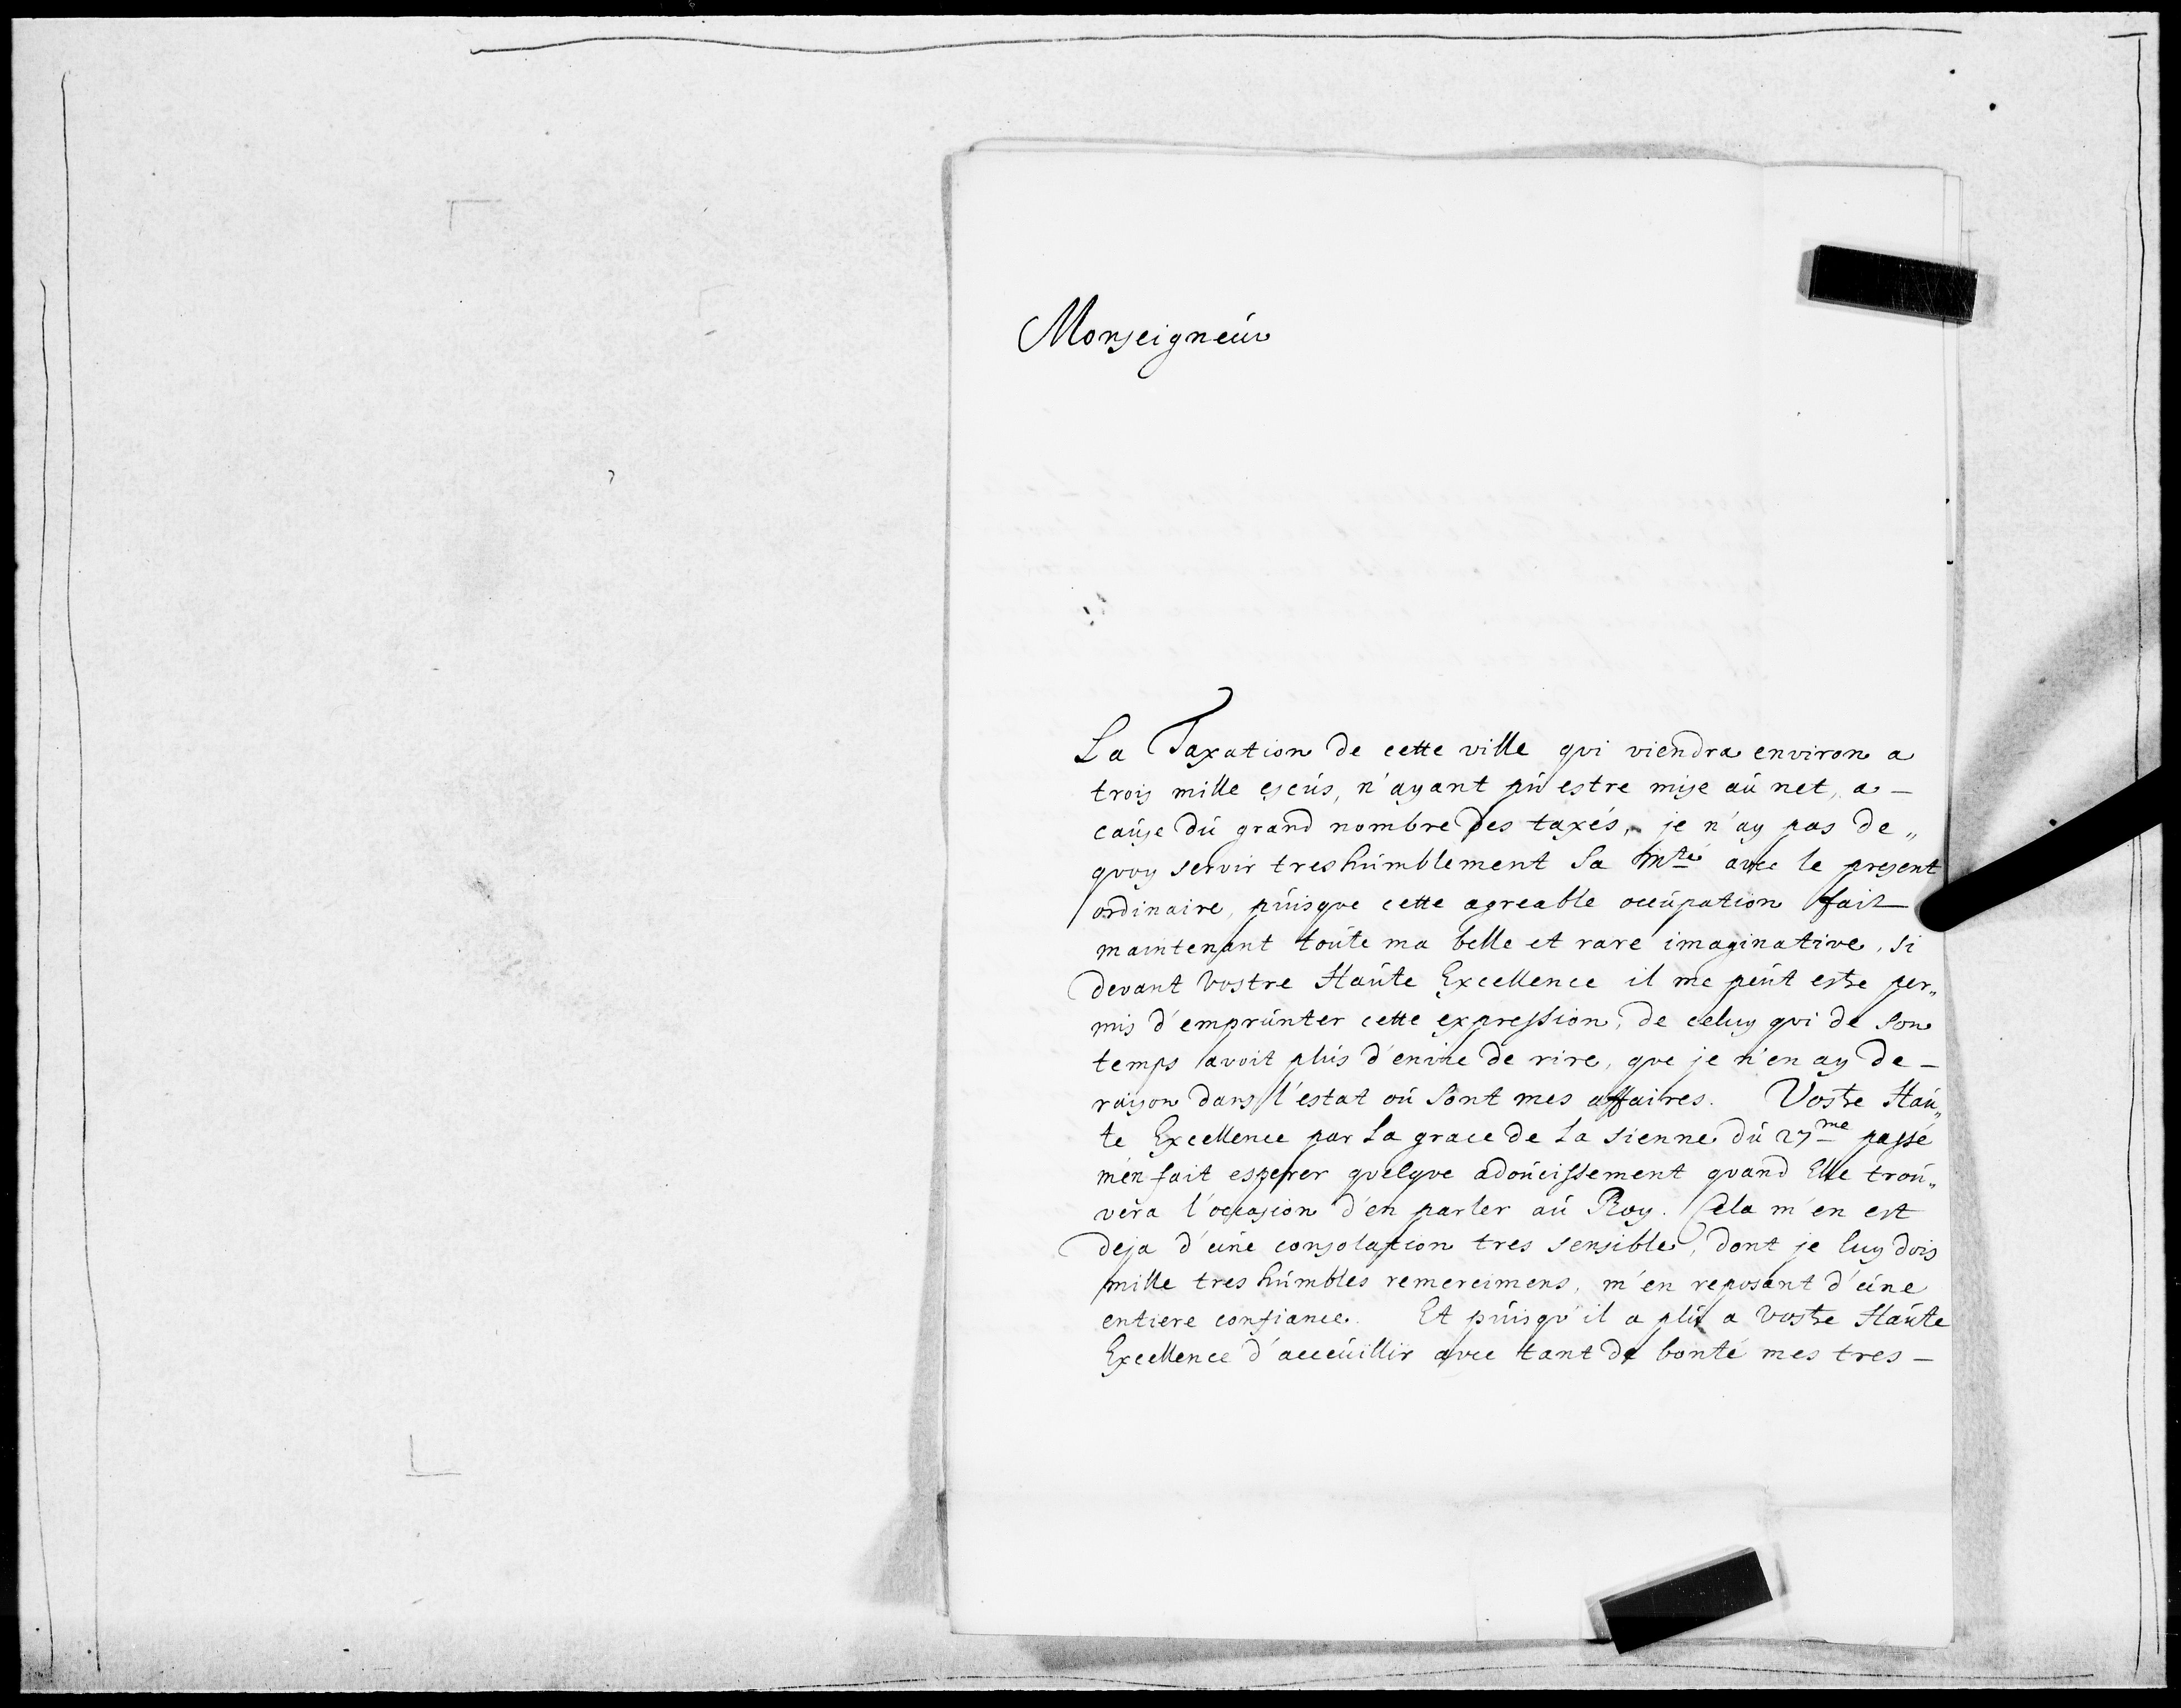 Monseigneur
La Taxation de cette ville qui viendra environ a
trois mille escus, n'ayant pû estre mise au net, a-
cause du grand nombre des taxés, je n'ay pas de„
quoy servir treshumblement Sa Mté avec le present
ordinaire, puisque cette agreable occupation fait
maintenant toute ma belle et rare imaginative, si
devant Vostre Haute Excellence il me peut estre per„
mis d'emprunter cette expression, de celuy qui de son
temps avoit plus d'envie de rire, que je n'en ay de-
raison dans l'estat où sont mes affaires. Vostre Hau„
te Excellence par la grace de la sienne du 27me passé
m'en fait esperer quelque adoucissement quand Elle trou„
vera l'occasion d'en parler au Roy. Cela m'en est
deja d'une consolation tres sensible, dont je luy dois
mille tres humbles remercimens, m'en reposant d'une
entiere confiance. Et puisqu'il a plû a Vostre Haute
Excellence d'accuillir avec tant de bonté mes tres-